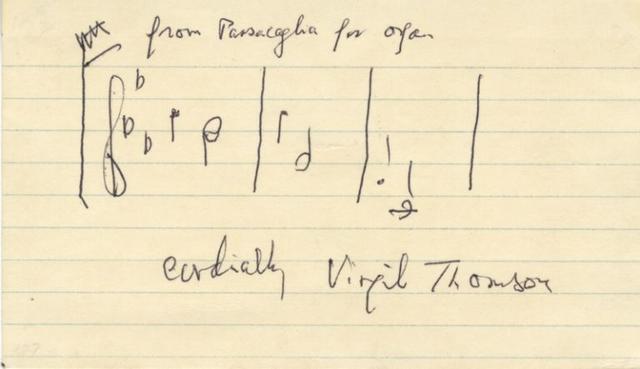 from Passacaglia for organ
cordially Virgil Thomson